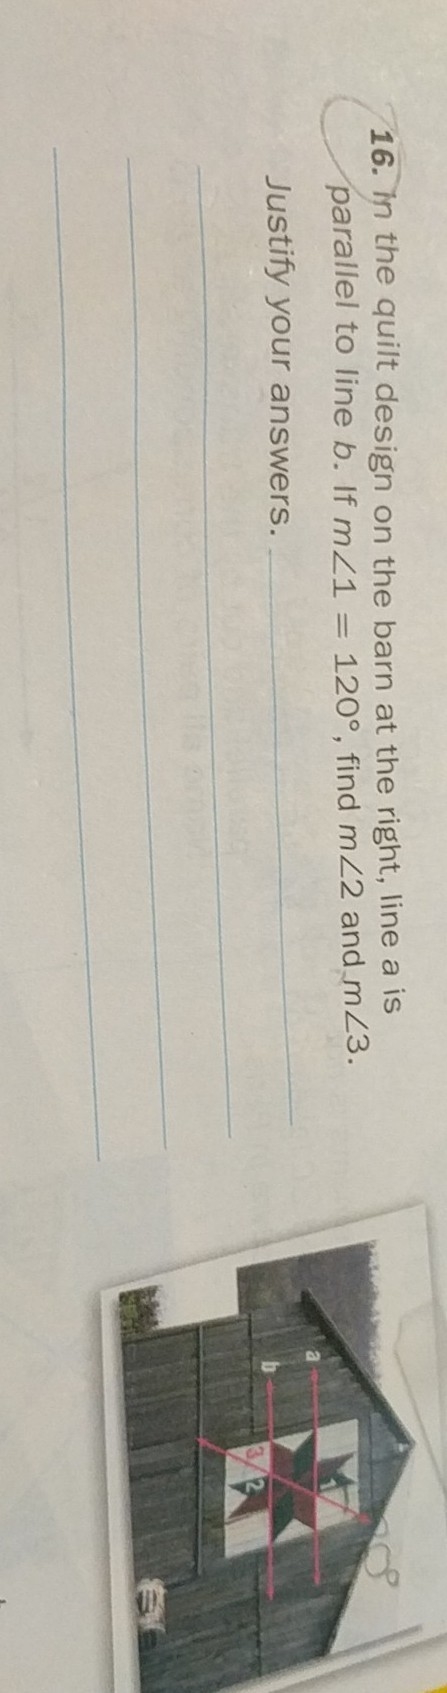 16. In the quilt design on the barn at the right, line a is
parallel to line b. If m∠1 = 120°, find m∠2 and m∠3.
Justify your answers.
a
b
1
3 2